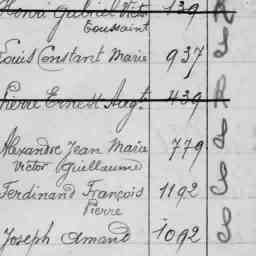 Henri Gabriel Victor 139 R
Toussaint
Louis Constant Marie 937 S
Pierre Ernest Augte 439 R
Alexandre Jean Maria 779 S
Victor Guillaume
Ferdinand François 1192 S
Pierre
Joseph Amand 1092 S